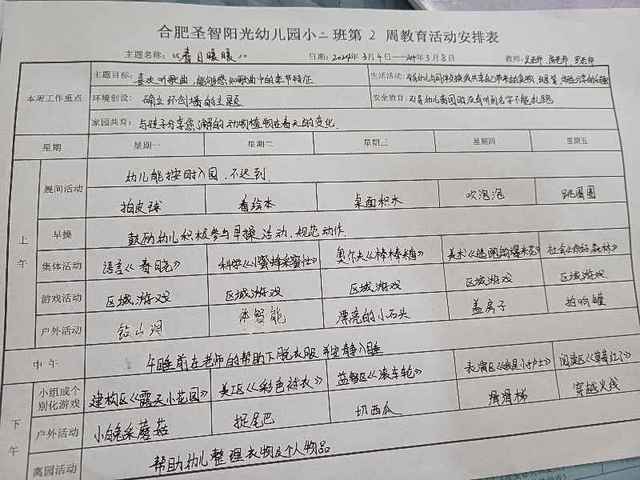 合肥圣智阳光幼儿园小二班第 2 周教育活动安排表
主题名称：《春日暖暖》 日期：2024年3月4日——3月8日 教师：
本周工作重点 主题目标：喜欢听歌曲，能 歌曲中的季节特征 生活活动：
环境创设：确立环创墙的主题 安全教育：
家园共育：与孩子分享您了解的动物植物在春天的变化
星期 星期一 星期二 星期三 星期四 星期五
上午 晨间活动 幼儿能按时入园，不迟到
拍皮球 看绘本 桌面积木 吹泡泡 跳圈圈
早操 鼓励幼儿积极参与早操活动，规范动作
集体活动 语言《春日 》 科学《小蜜蜂采蜜忙》 奥尔夫《棒棒 》 美术《 爆米花》 社会《 森林》
游戏活动 区域游戏 区域游戏 区域游戏 区域游戏 区域游戏
户外活动 钻山洞 体智能 漂亮的小石头 盖房子 拍响罐
中午 午睡前在老师的帮助下脱衣服 安静入睡
下午 小组或个别化游戏 建构区《露天小花园》 美工区《彩色 衣》 益智区《滚车轮》 表演区《 小护士》 阅读区《 》
户外活动 小白兔采蘑菇 捉尾巴 切西瓜 滑滑梯 穿越火线
离园活动 帮助幼儿整理衣物及个人物品